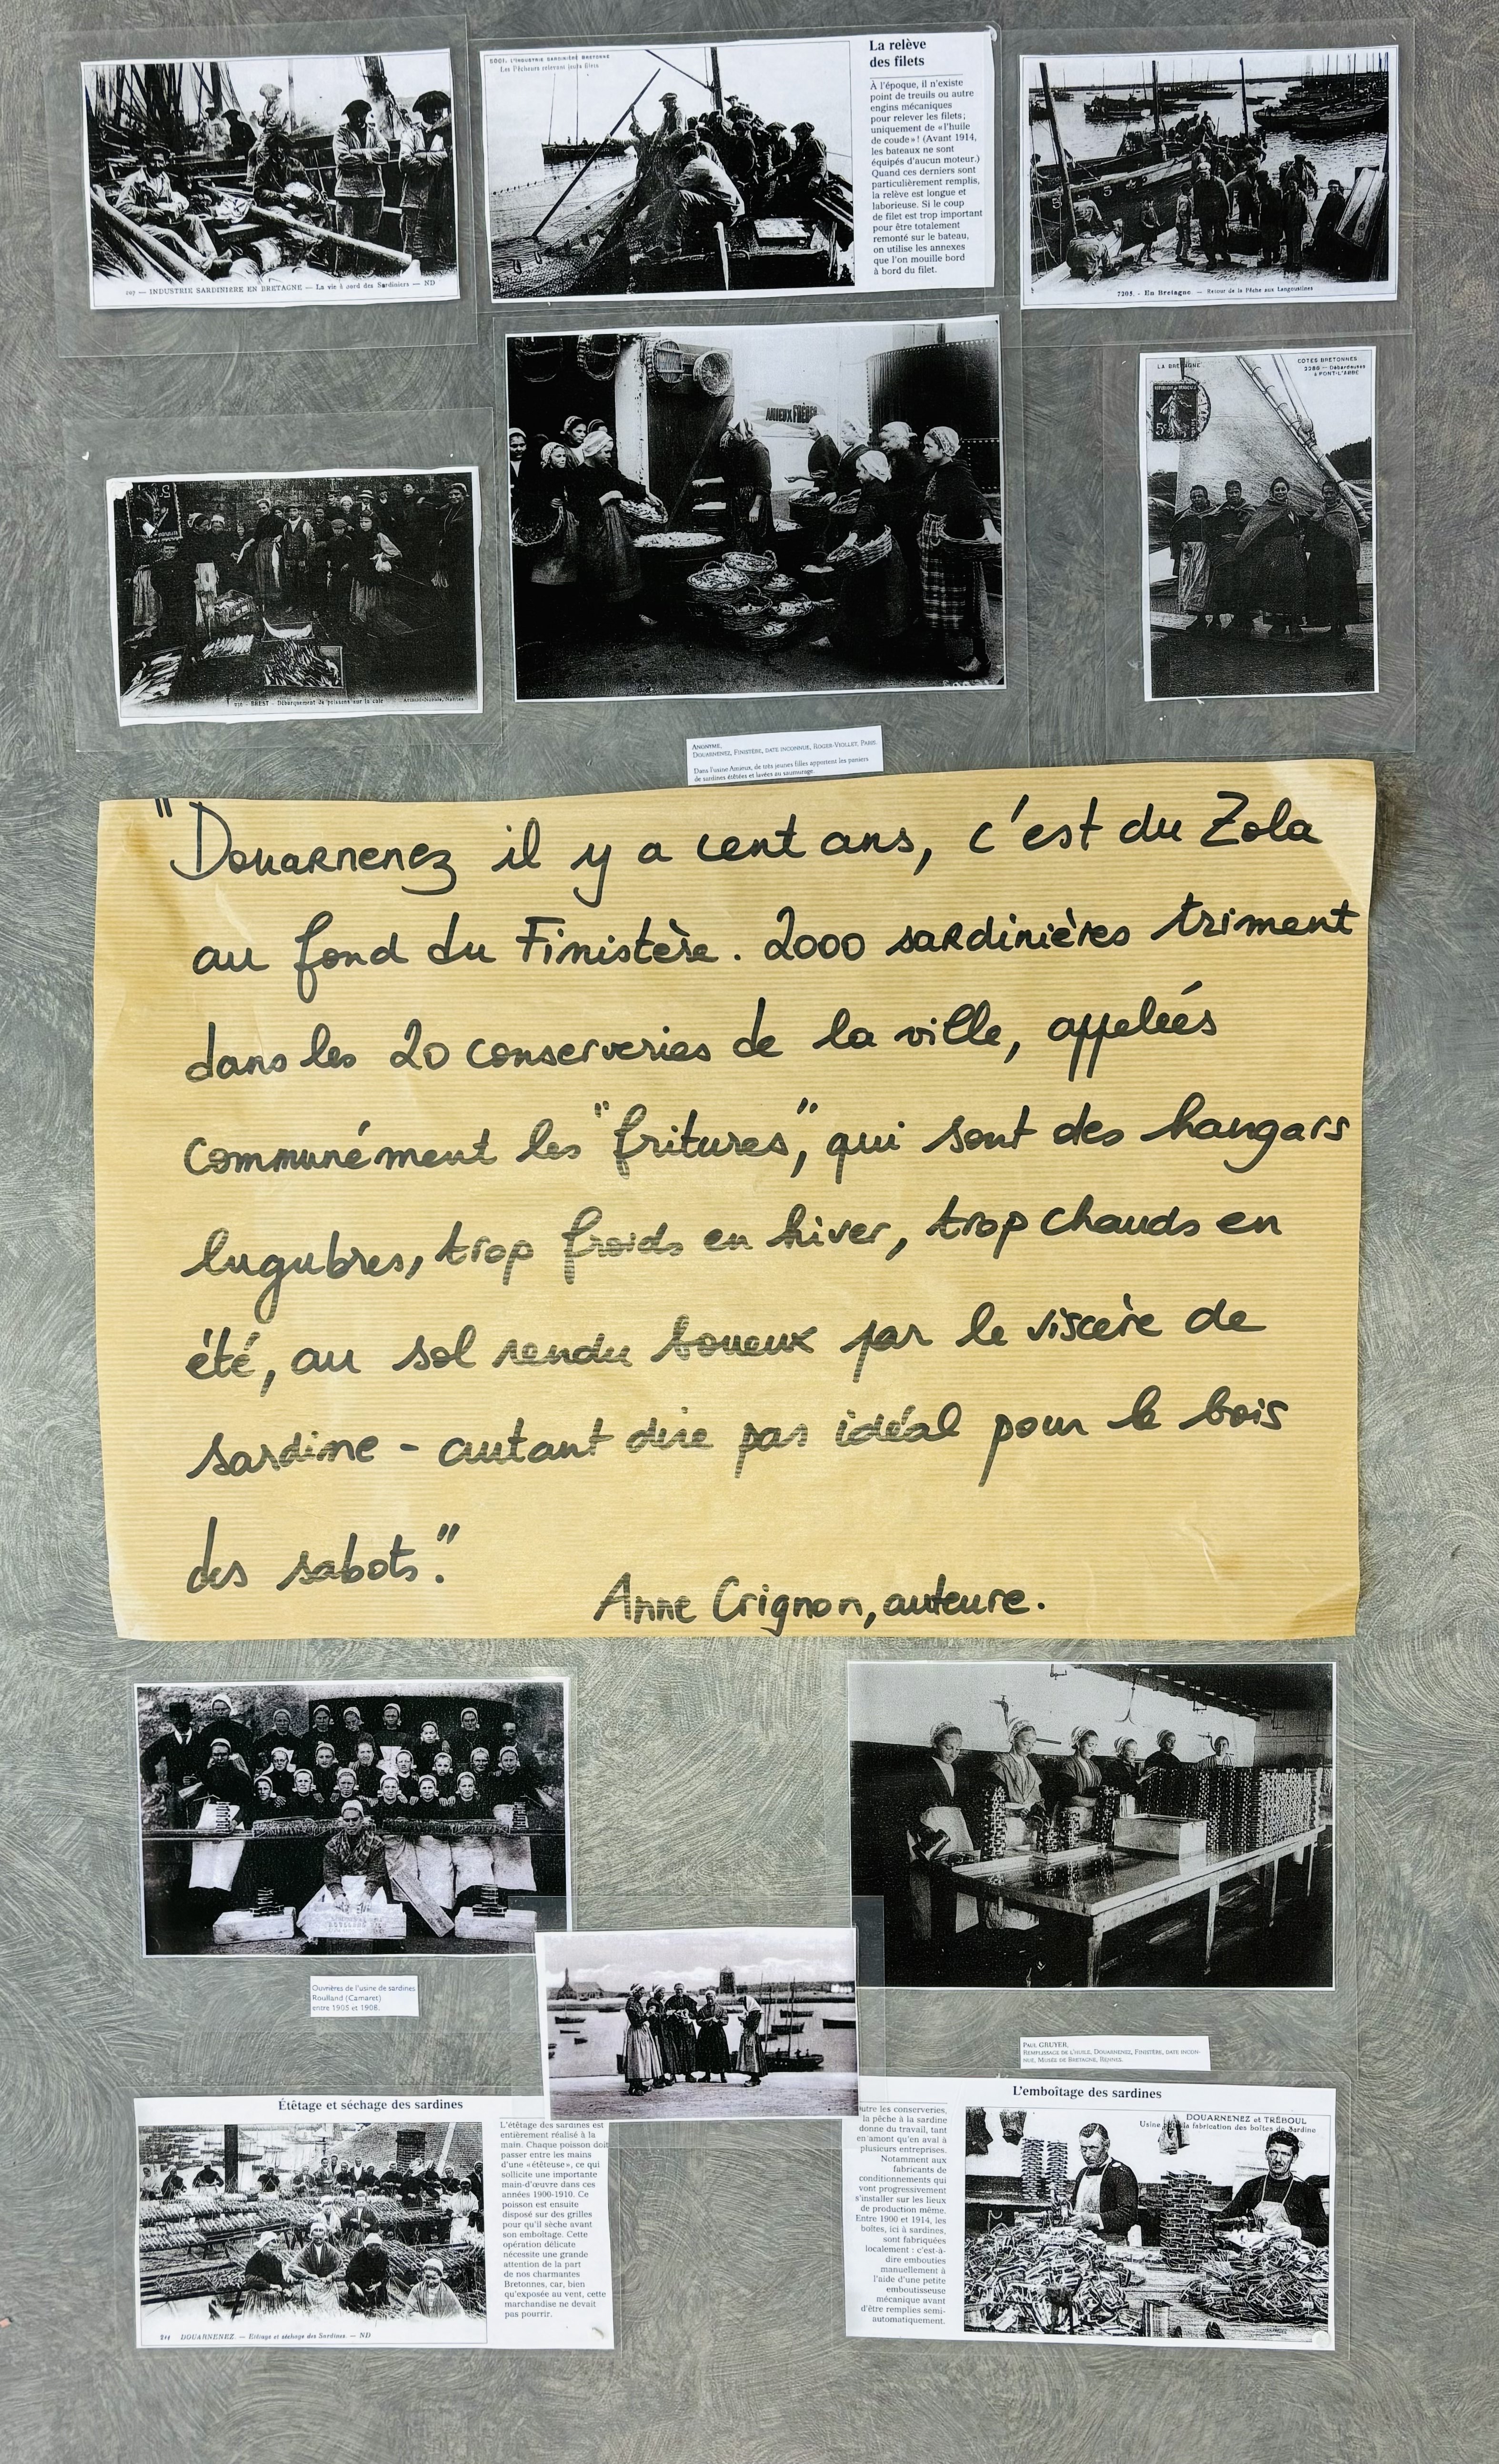 207 — INDUSTRIE SARDINIÈRE EN BRETAGNE — La vie à bord des Sardiniers — ND
5001. L'INDUSTRIE SARDINIÈRE BRETONNE
Les Pêcheurs relevant leurs filets
La relève
des filets
À l'époque, il n'existe
point de treuils ou autre
engins mécaniques
pour relever les filets;
uniquement de «l'huile
de coude»! (Avant 1914,
les bateaux ne sont
équipés d'aucun moteur.)
Quand ces derniers sont
particulièrement remplis,
la relève est longue et
laborieuse. Si le coup
de filet est trop important
pour être totalement
remonté sur le bateau,
on utilise les annexes
que l'on mouille bord
à bord du filet.
7205. - En Bretagne. — Retour de la Pêche aux Langoustines
BREST - Débarquement de poissons sur la cale
AMIEUX FRÈRES
LA BRETAGNE
COTES BRETONNES
2286 — Débardeuses
à PONT-L'ABBÉ
5c
ANONYME,
DOUARNENEZ, FINISTÈRE, DATE INCONNUE, ROGER-VIOLLET, PARIS.
Dans l'usine Amieux, de très jeunes filles apportent les paniers
de sardines étêtées et lavées au saumurage.
"Douarnenez il y a cent ans, c'est du Zola
au fond du Finistère. 2000 sardinières triment
dans les 20 conserveries de la ville, appelées
communément les "fritures", qui sont des hangars
lugubres, trop froids en hiver, trop chauds en
été, au sol rendu boueux par le viscère de
sardine - autant dire pas idéal pour le bois
des sabots."
Anne Crignon, auteure.
Ouvrières de l'usine de sardines
Roulland (Camaret)
entre 1905 et 1908.
PAUL GRUYER,
REMPLISSAGE DE L'HUILE, DOUARNENEZ, FINISTÈRE, DATE INCON-
NUE, MUSÉE DE BRETAGNE, RENNES.
Étêtage et séchage des sardines
L'étêtage des sardines est
entièrement réalisé à la
main. Chaque poisson doit
passer entre les mains
d'une «étêteuse», ce qui
sollicite une importante
main-d'œuvre dans ces
années 1900-1910. Ce
poisson est ensuite
disposé sur des grilles
pour qu'il sèche avant
son emboîtage. Cette
opération délicate
nécessite une grande
attention de la part
de nos charmantes
Bretonnes, car, bien
qu'exposée au vent, cette
marchandise ne devait
pas pourrir.
211 DOUARNENEZ. — Etêtage et séchage des Sardines. — ND
L'emboîtage des sardines
utre les conserveries,
la pêche à la sardine
donne du travail, tant
en amont qu'en aval à
plusieurs entreprises.
Notamment aux
fabricants de
conditionnements qui
vont progressivement
s'installer sur les lieux
de production même.
Entre 1900 et 1914, les
boîtes, ici à sardines,
sont fabriquées
localement : c'est-à-
dire embouties
manuellement à
l'aide d'une petite
emboutisseuse
mécanique avant
d'être remplies semi-
automatiquement.
DOUARNENEZ et TRÉBOUL
Usine la fabrication des boîtes de Sardine